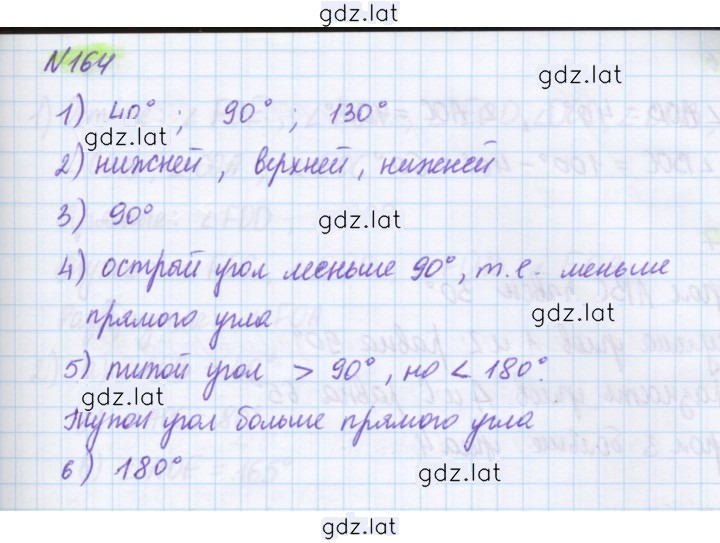 gdz.lat
N164
gdz.lat
1) 40° ; 90° ; 130°
gdz.lat
2) нижней , верхней , нижней
3) 90°
gdz.lat
4) острый угол меньше 90°, т.е. меньше
прямого угла
gdz.lat
5) тупой угол > 90°, но < 180°.
gdz.lat
Тупой угол больше прямого угла
6) 180°
gdz.lat
gdz.lat